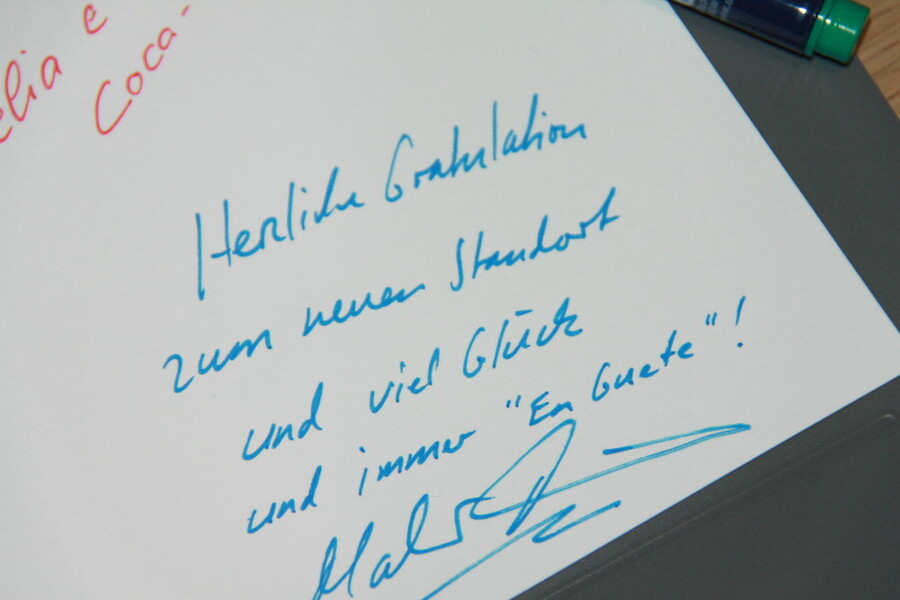 elia e
Coca-
Herzliche Gratulation
zum neuen Standort
und viel Glück
und immer "En Guete"!